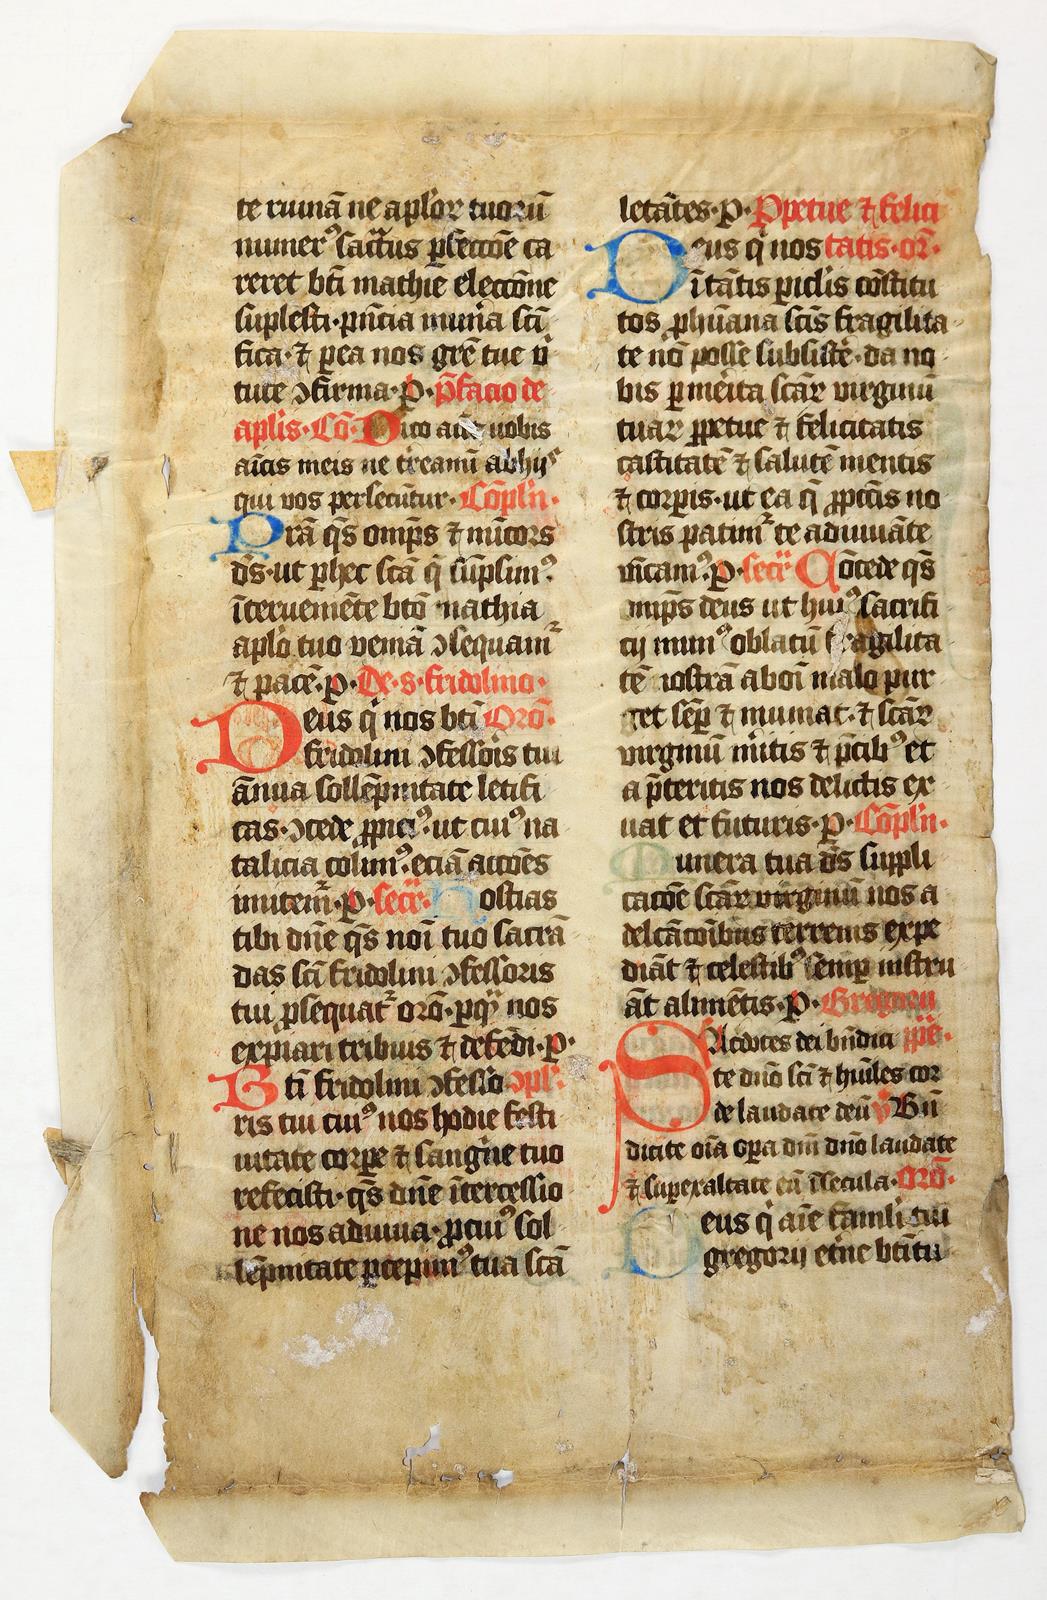 te ruinā ne aplor̄ tuorū
numer⁹ sac̄tus p̄fecc̄oe ca
reret bt̄i mathie elecc̄one
suplesti·p̄nc̄ia mun̄a sc̄i
fica·⁊ p̱ ea nos gr̄e tue v̄
tute ↄfirma·p̱·p̄facio de
aplis·Cō·Dico aūt vobis
aīcis meis ne t̄reamī ab hijs
qui vos persecūtur·Cōpln̄·
Prā q̄s omp̄s ⁊ mīcors
ds̄·ut p̱ hec sc̄ā q̄ sūpsim⁹·
īterueniēte btō mathia
aplō tuo veniā ↄsequam̄
⁊ pacē·p̱·De·s·fridolino·
Deus q̄ nos bt̄i Orō·
fridolini ↄfessōis tui
ānua sollēpnitate letifi
cas·ↄcede p̱pici⁹·ut cui⁹ na
talicia colim⁹·eciā acc̄oēs
imitem̄·p̱·secr̄·Hostias
tibi dn̄e q̄s noī tuo sacrā
das sc̄i fridolini ↄfessoris
tui p̱sequat̄ orō·p̱ quā nos
expiari tribuis ⁊ defēdi·p̱·
Bt̄i fridolini ↄfesso ↄpl̄·
ris tui cui⁹ nos hodie festi
uitate corpe ⁊ sangīne tuo
refecisti·q̄s dn̄e īt̄cessio
ne nos adiuua·p̱ cui⁹ sol
lēpnitate p̱cepim⁹ tua sc̄ā
letātes·p̱·P̱petue ⁊ felici
Deus q̄ nos tatis·or̄·
ī tātis p̱iclis cōstitu
tos p̱ hūana sc̄is fragilita
te nō posse subsistē·da no
bis p̱ mēita sc̄ar̄ virginū
tuar̄ p̱petue ⁊ felicitatis
castitatē ⁊ salutē mentis
⁊ corpis·ut ea q̄ p̱ pcc̄īs no
stris patim̄ te adiuuāte
vīcam⁹·p̱·secr̄ Cōcede q̄s
omp̄s deus ut hui⁹ sacrifi
cij mun⁹ oblatū fragilita
tē nostrā ab oī malo pur
get sēp̱ ⁊ muniat·⁊ sc̄ar̄
virginū mītis ⁊ p̄cib⁹ et
a p̄teritis nos delictis ex
uat et futuris·p̱·Cōpln̄·
Munera tua ds̄ suppli
cac̄oē sc̄ar̄ virginū nos a
delc̄atoībus terrenis expe
diāt ⁊ celestib⁹ semp̱ instru
āt alimētis·p̱·Gregorii
Sacdotes dei bn̄dici pp̄e·
te dn̄o sc̄i ⁊ hūiles cor
de laudate deū v̄ Bn̄
dicite oīa op̱a dn̄i dn̄o laudate
⁊ sup̱exaltate eū ī secula·Orō·
Deus q̄ aīe famli tui
gregorij et̄ne btītu